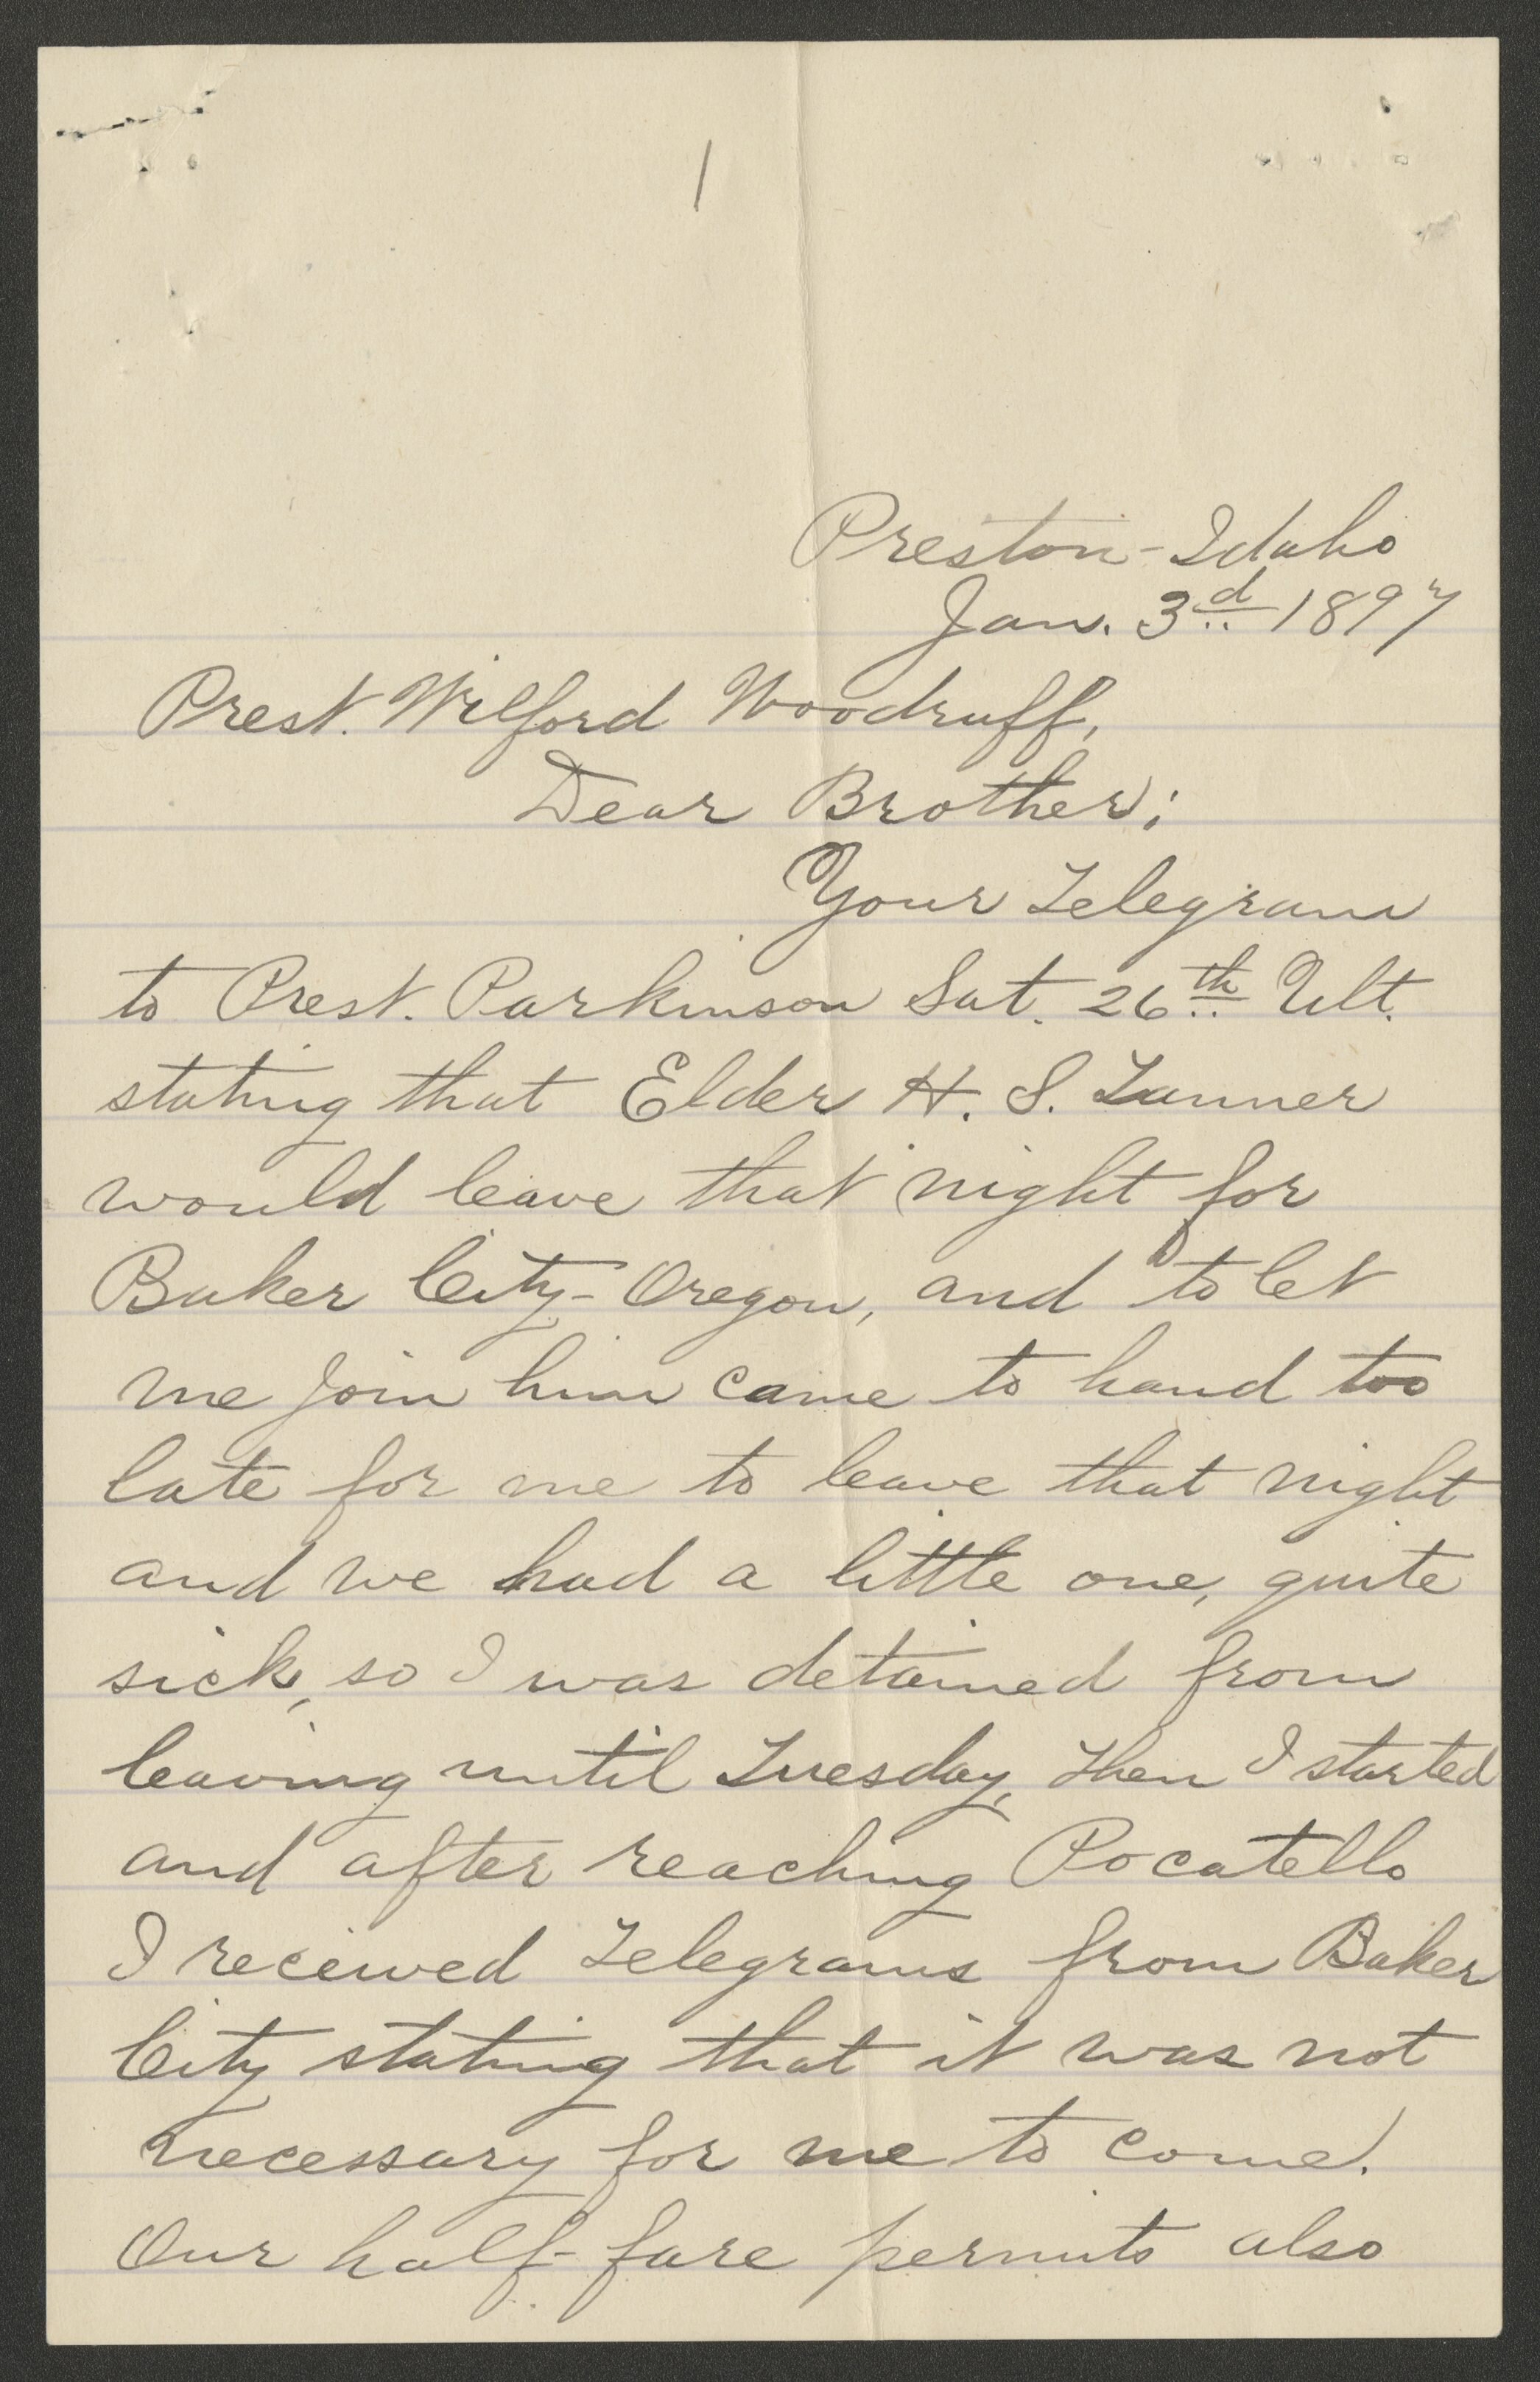 1
Preston-Idaho
Jan. 3d 1897
Prest. Wilford Woodruff,
Dear Brother;
Your Telegram
to Prest. Parkinson Sat. 26th Ult.
stating that Elder H. S. Tanner
would leave that night for
Baker City-Oregon, and to let
me join him came to hand too
late for me to leave that night
and we had a little one, quite
sick, so I was detained from
leaving until Tuesday, then I started
and after reaching Pocatello
I received Telegrams from Baker
City stating that it was not
necessary for me to come.
Our half-fare permits also